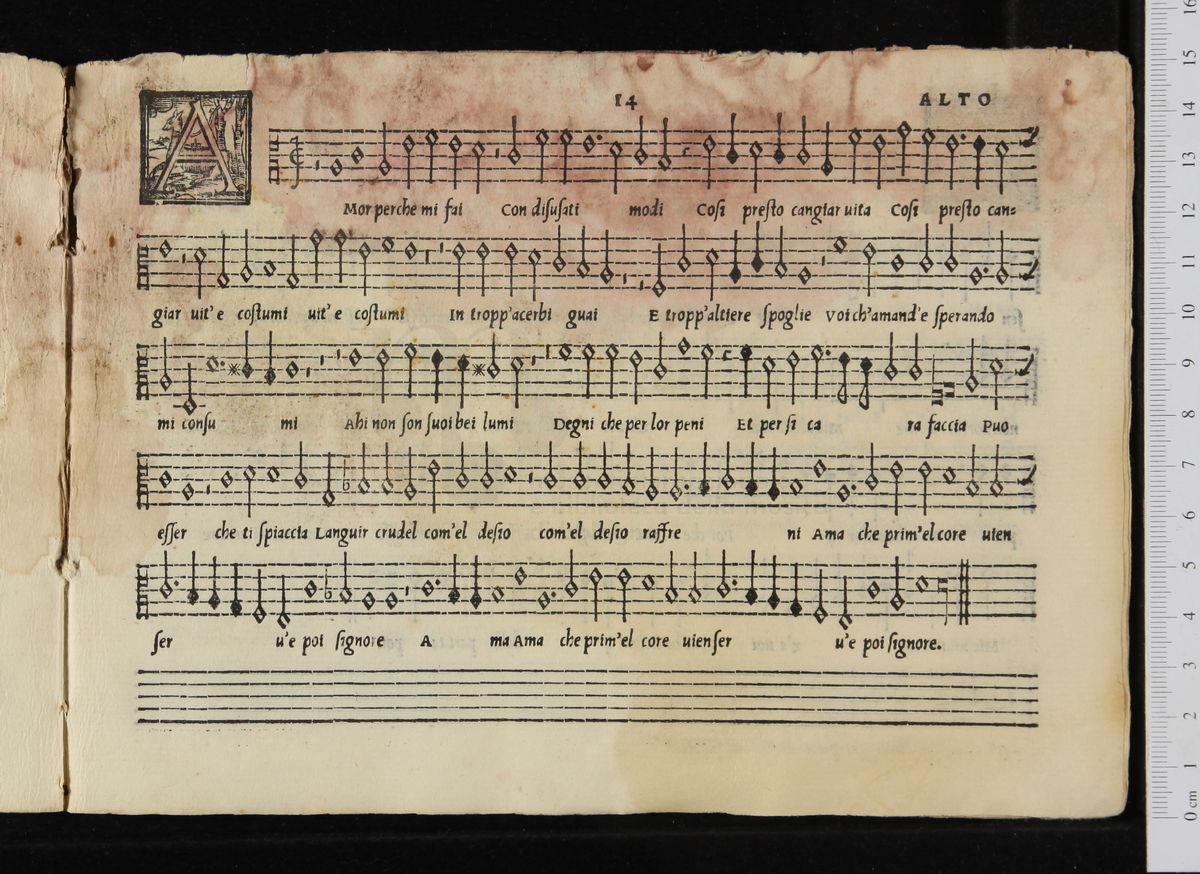 14 ALTO
A
Mor perche mi fai Con disusati modi Cosi presto cangiar uita Cosi presto can=
giar uit'e costumi uit'e costumi In tropp'acerbi guai E tropp'altiere spoglie Voi ch'amand'e sperando
mi consu mi Ahi non son suoi bei lumi Degni che per lor peni Et per si ca ra faccia Puo
esser che ti spiaccia Languir crudel com'el desio com'el desio raffre ni Ama che prim'el core uien
ser u'e poi signore A ma Ama che prim'el core uienser u'e poi signore.
0 cm 1 2 3 4 5 6 7 8 9 10 11 12 13 14 15 16